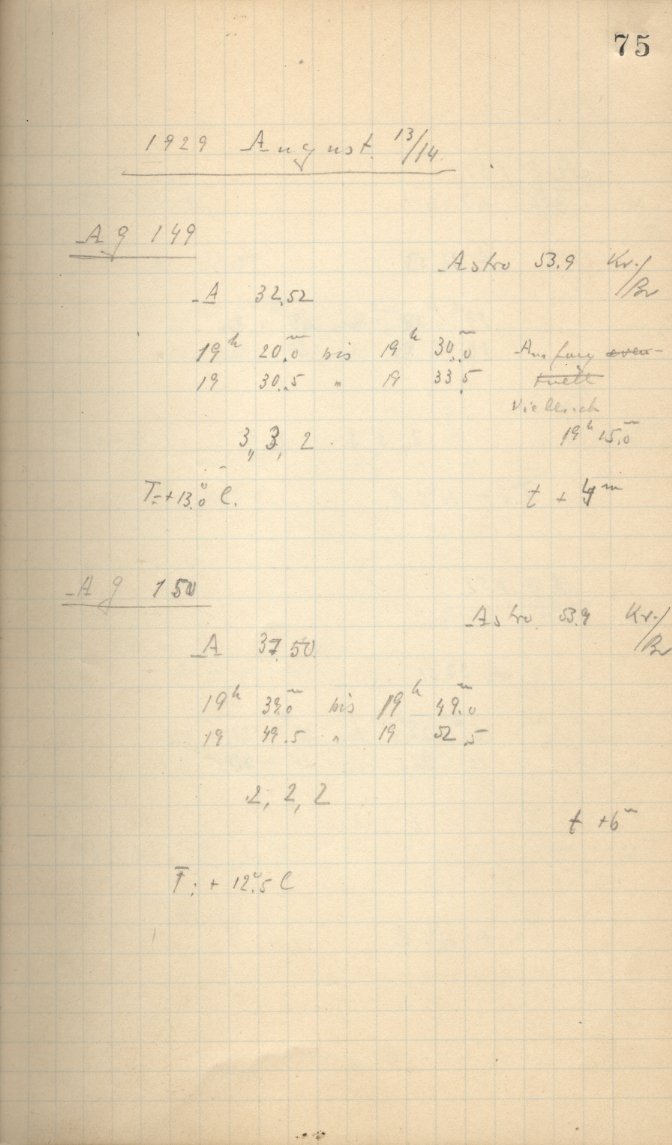 75
1929 August 13/14.
Ag 149
Astro 53.9 Kr./Br
A 32,52
19h 20m,0 bis 19h 30m,0 Anfang even-
19 30,5 " 19 33,5 tuell
vielleich
19h 15m,0
3, 3, 2
T=+13°,0 C. t + 4m
Ag 150
Astro 53.9 Kr./Br
A 37,50
19h 39m,0 bis 19h 49m,0
19 49.5 " 19 52,5
2, 2, 2
t +6m
T: + 12°,5 C